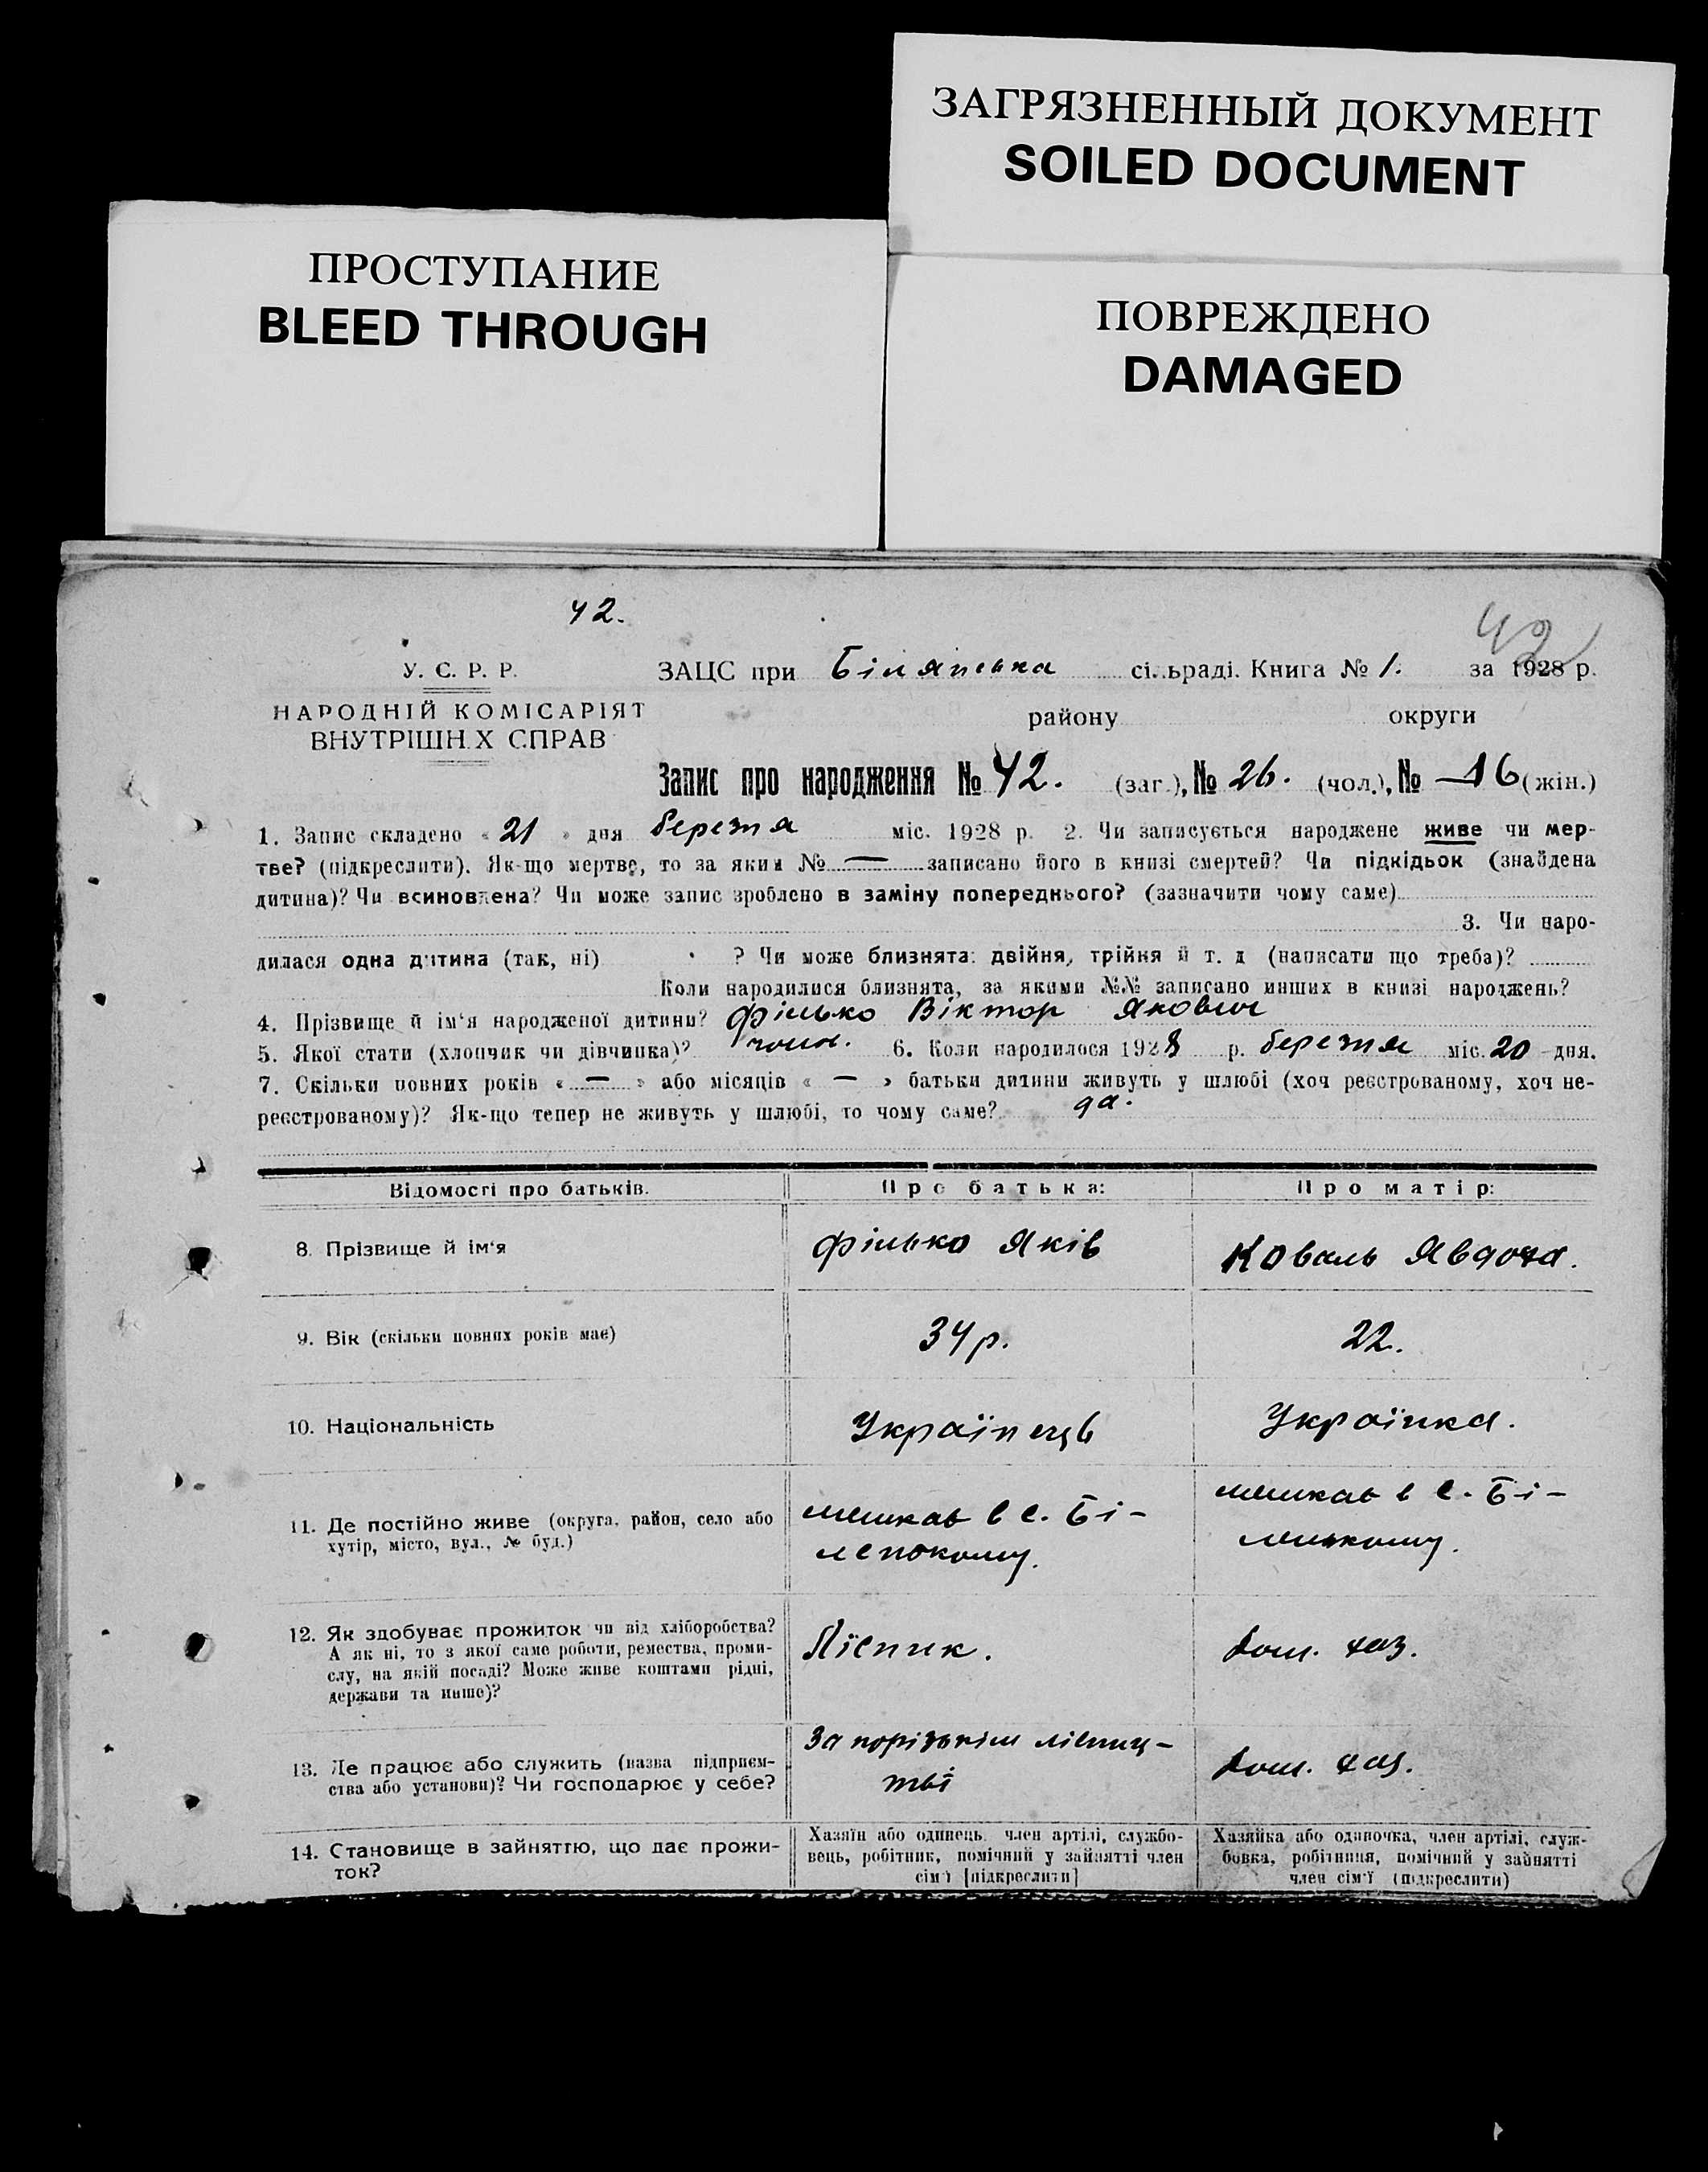 ЗАГРЯЗНЕННЫЙ ДОКУМЕНТ
SOILED DOCUMENT
ПРОСТУПАНИЕ
BLEED THROUGH
ПОВРЕЖДЕНО
DAMAGED
42.
42
У. С. Р. Р.
НАРОДНІЙ КОМІСАРІЯТ
ВНУТРІШН Х СПРАВ
ЗАЦС при Біляпська сі..ьраді. Книга № 1. за 1928 р.
району округи
Запис про народження № 42. (заг.), № 26. (чол.), № 16 (жін.)
1. Запис складено « 21 » дня березня міс. 1928 р. 2. Чи записується народжене живе чи мер-
тве? (підкреслити). Як-що мертве, то за яким № — записано його в книзі смертей? Чи підкідьок (знайдена
дитина)? Чи всиновлена? Чи може запис зроблено в заміну попереднього? (зазначити чому саме)
3. Чи наро-
дилася одна дитина (так, ні) ? Чи може близнята: двійня, трійня й т. д (написати що треба)?
Коли народилися близнята, за якими №№ записано инших в книзі народжень?
4. Прізвище й ім‘я народженої дитини? Філько Віктор Якович
5. Якої стати (хлопчик чи дівчинка)? чолов. 6. Коли народилося 1928 р. березня міс. 20 дня.
7. Скільки повних років « — » або місяців « — » батьки дитини живуть у шлюбі (хоч реєстрованому, хоч не-
реєстрованому)? Як-що тепер не живуть у шлюбі, то чому саме? да.
Відомості про батьків. Про батька: Про матір:
8. Прізвище й ім‘я Філько Яків Коваль Явдоха.
9. Вік (скільки повних років має) 34 р. 22.
10. Національність Українець Українка.
11. Де постійно живе (округа, район, село або мешкав в с. Бі- мешкав в с. Бі-
хутір, місто, вул., № буд.) ленокому. ленькому.
12. Як здобуває прожиток чи від хліборобства?
А як ні, то з якої саме роботи, ремества, проми-
слу, на якій посаді? Може живе коштами рідні,
держави та инше)?
Лїсник. дом. хаз.
13. Де працює або служить (назва підприєм- Запорізькім лісниц-
ства або установи)? Чи господарює у себе? тві дом. хаз.
14. Становище в зайняттю, що дає прожи-
ток?
Хазяїн або одинець, член артілі, службо-
вець, робітник, помічний у зайнятті член
сім‘ї [підкреслити]
Хазяйка або одиночка, член артілі, служ-
бовка, робітниця, помічний у зайнятті
член сім‘ї (підкреслити)